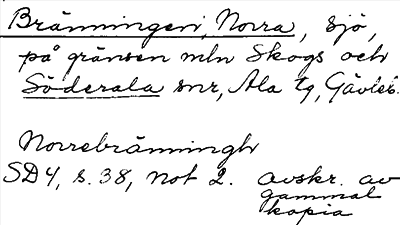 Bränningen, Norra, sjö,
på gränsen mln Skogs och
Söderala snr, Ala tg, Gävleb.
Norrebränningh
SD4, s. 38, not 2. avskr. av
gammal
kopia